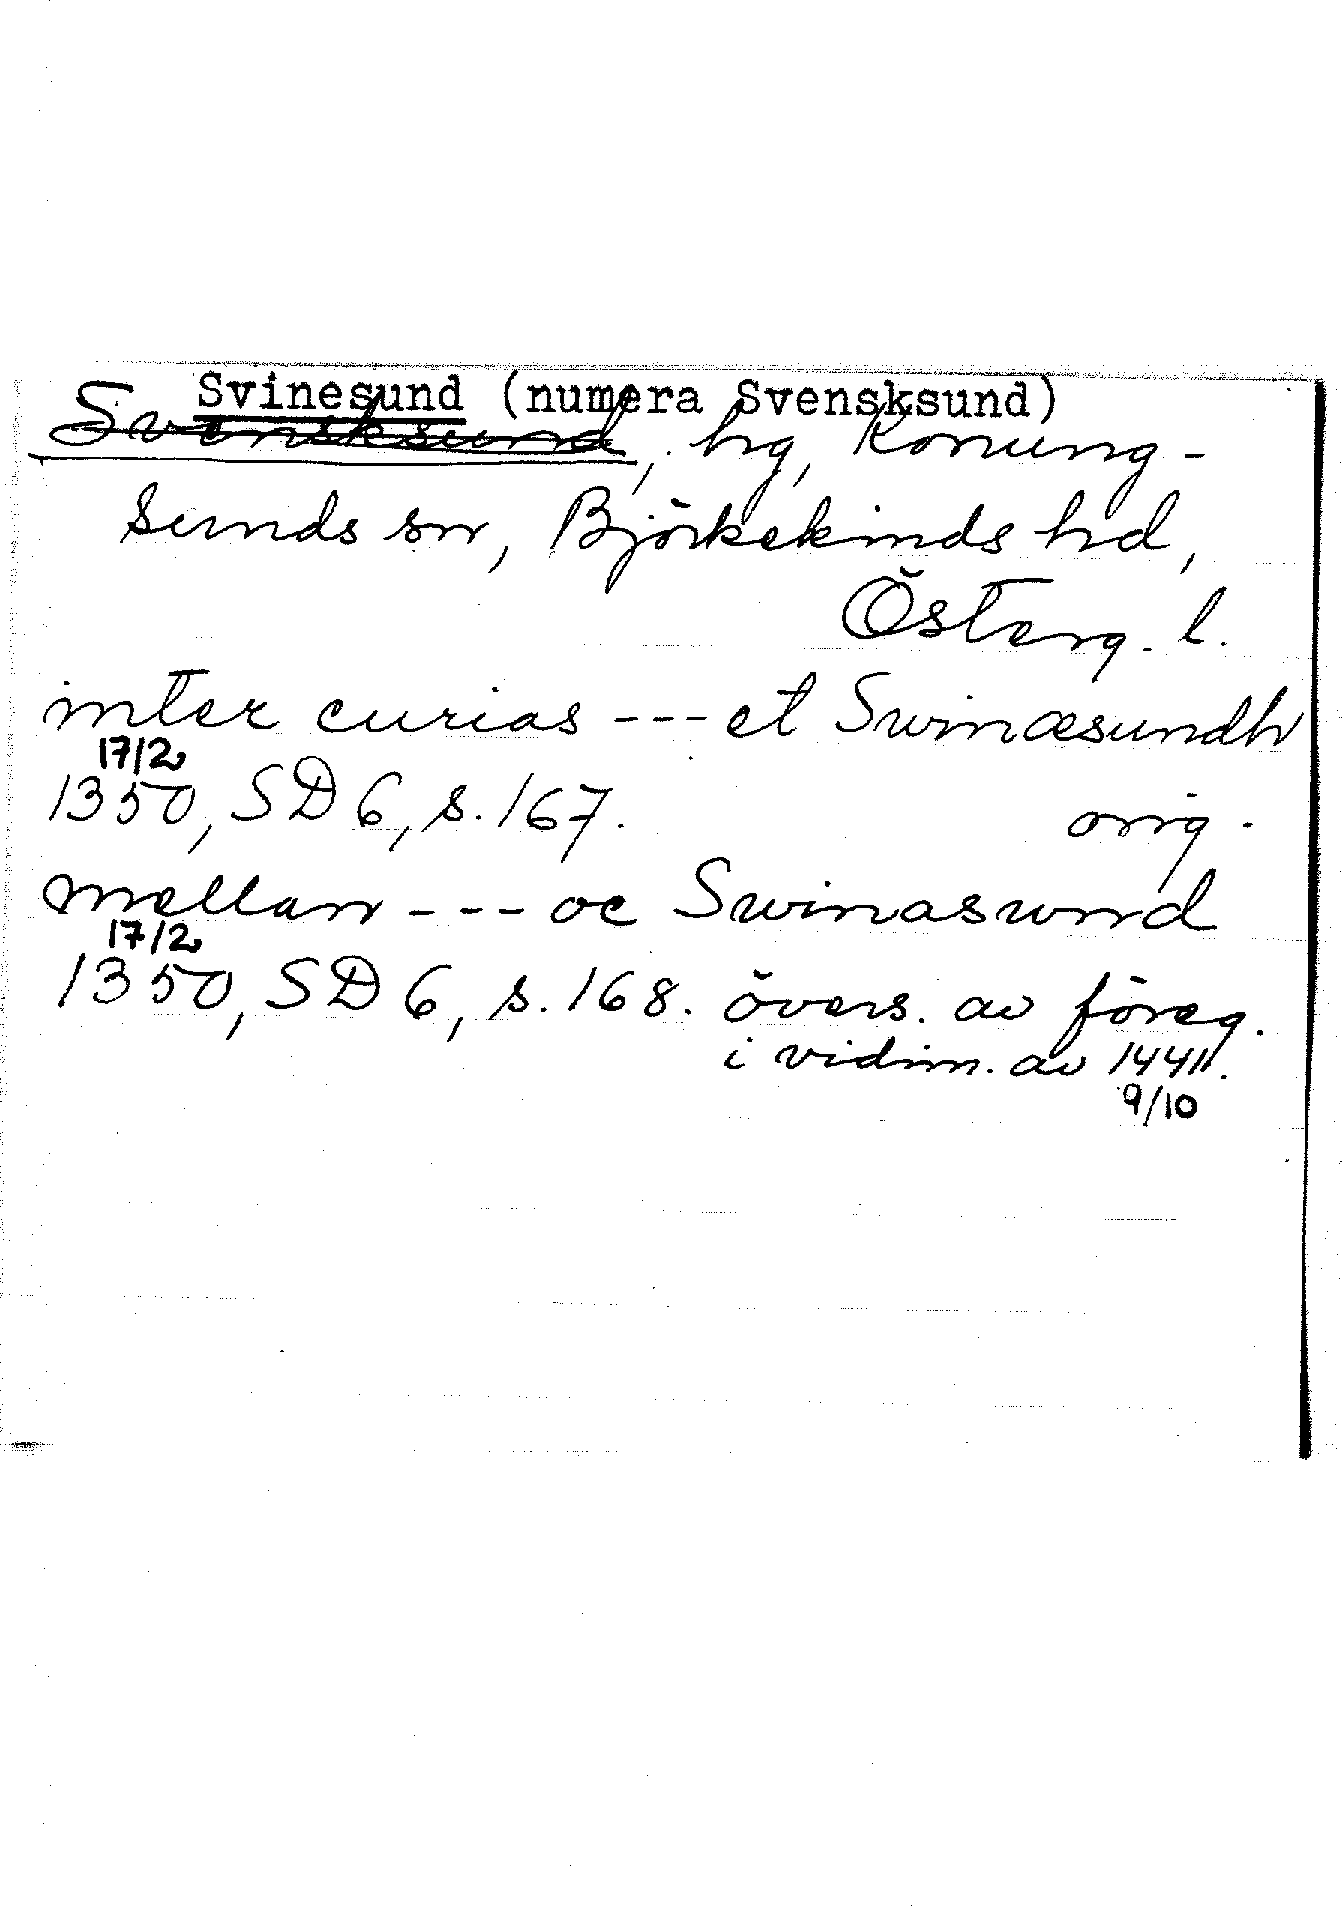 Svinesund (numera Svensksund)
Svensksund, hg, Konung-
sunds sn, Björkekinds hd,
Österg. l.
inter curias --- et Swinæsundh
17/2
1350, SD 6, s. 167. orig.
mellan --- oc Swinasund
17/2
1350, SD 6, s. 168. övers. av föreg.
i vidim. av 1441.
9/10